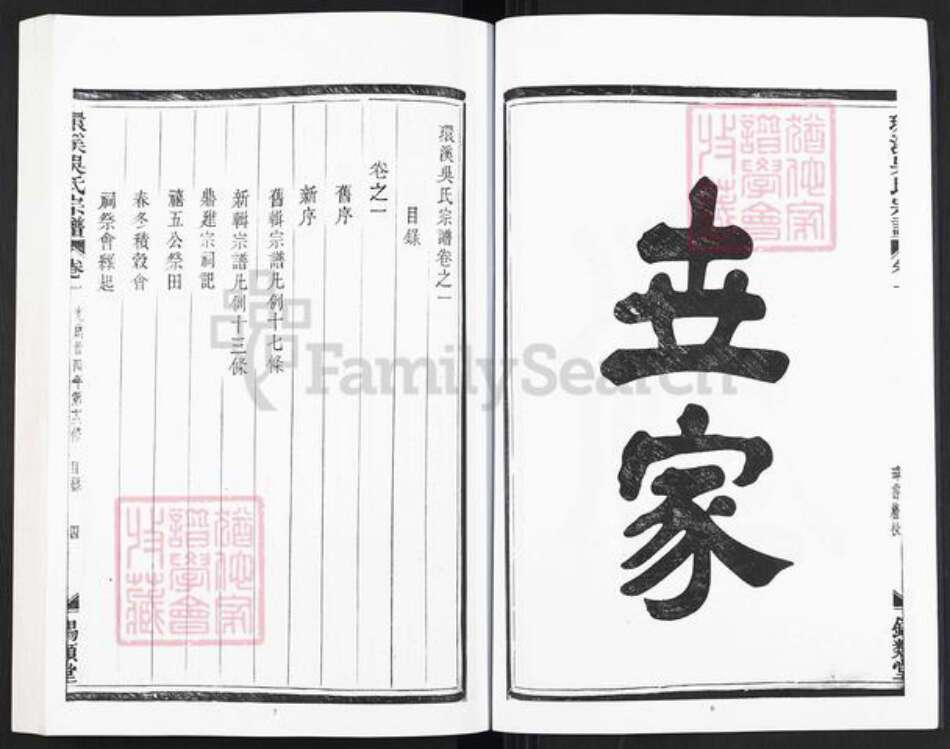 世家
環溪吳氏宗譜卷之一
目錄
卷之一
舊序
新序
舊輯宗譜凡例十七條
新輯宗譜凡例十三條
鼎建宗祠記
禧五公祭田
春冬積穀會
祠祭會緣起
環溪吳氏宗譜
卷一
目錄
四
錫類堂
錫類堂
猶他家譜學會收藏
猶他家譜學會收藏
FamilySearch
7
6